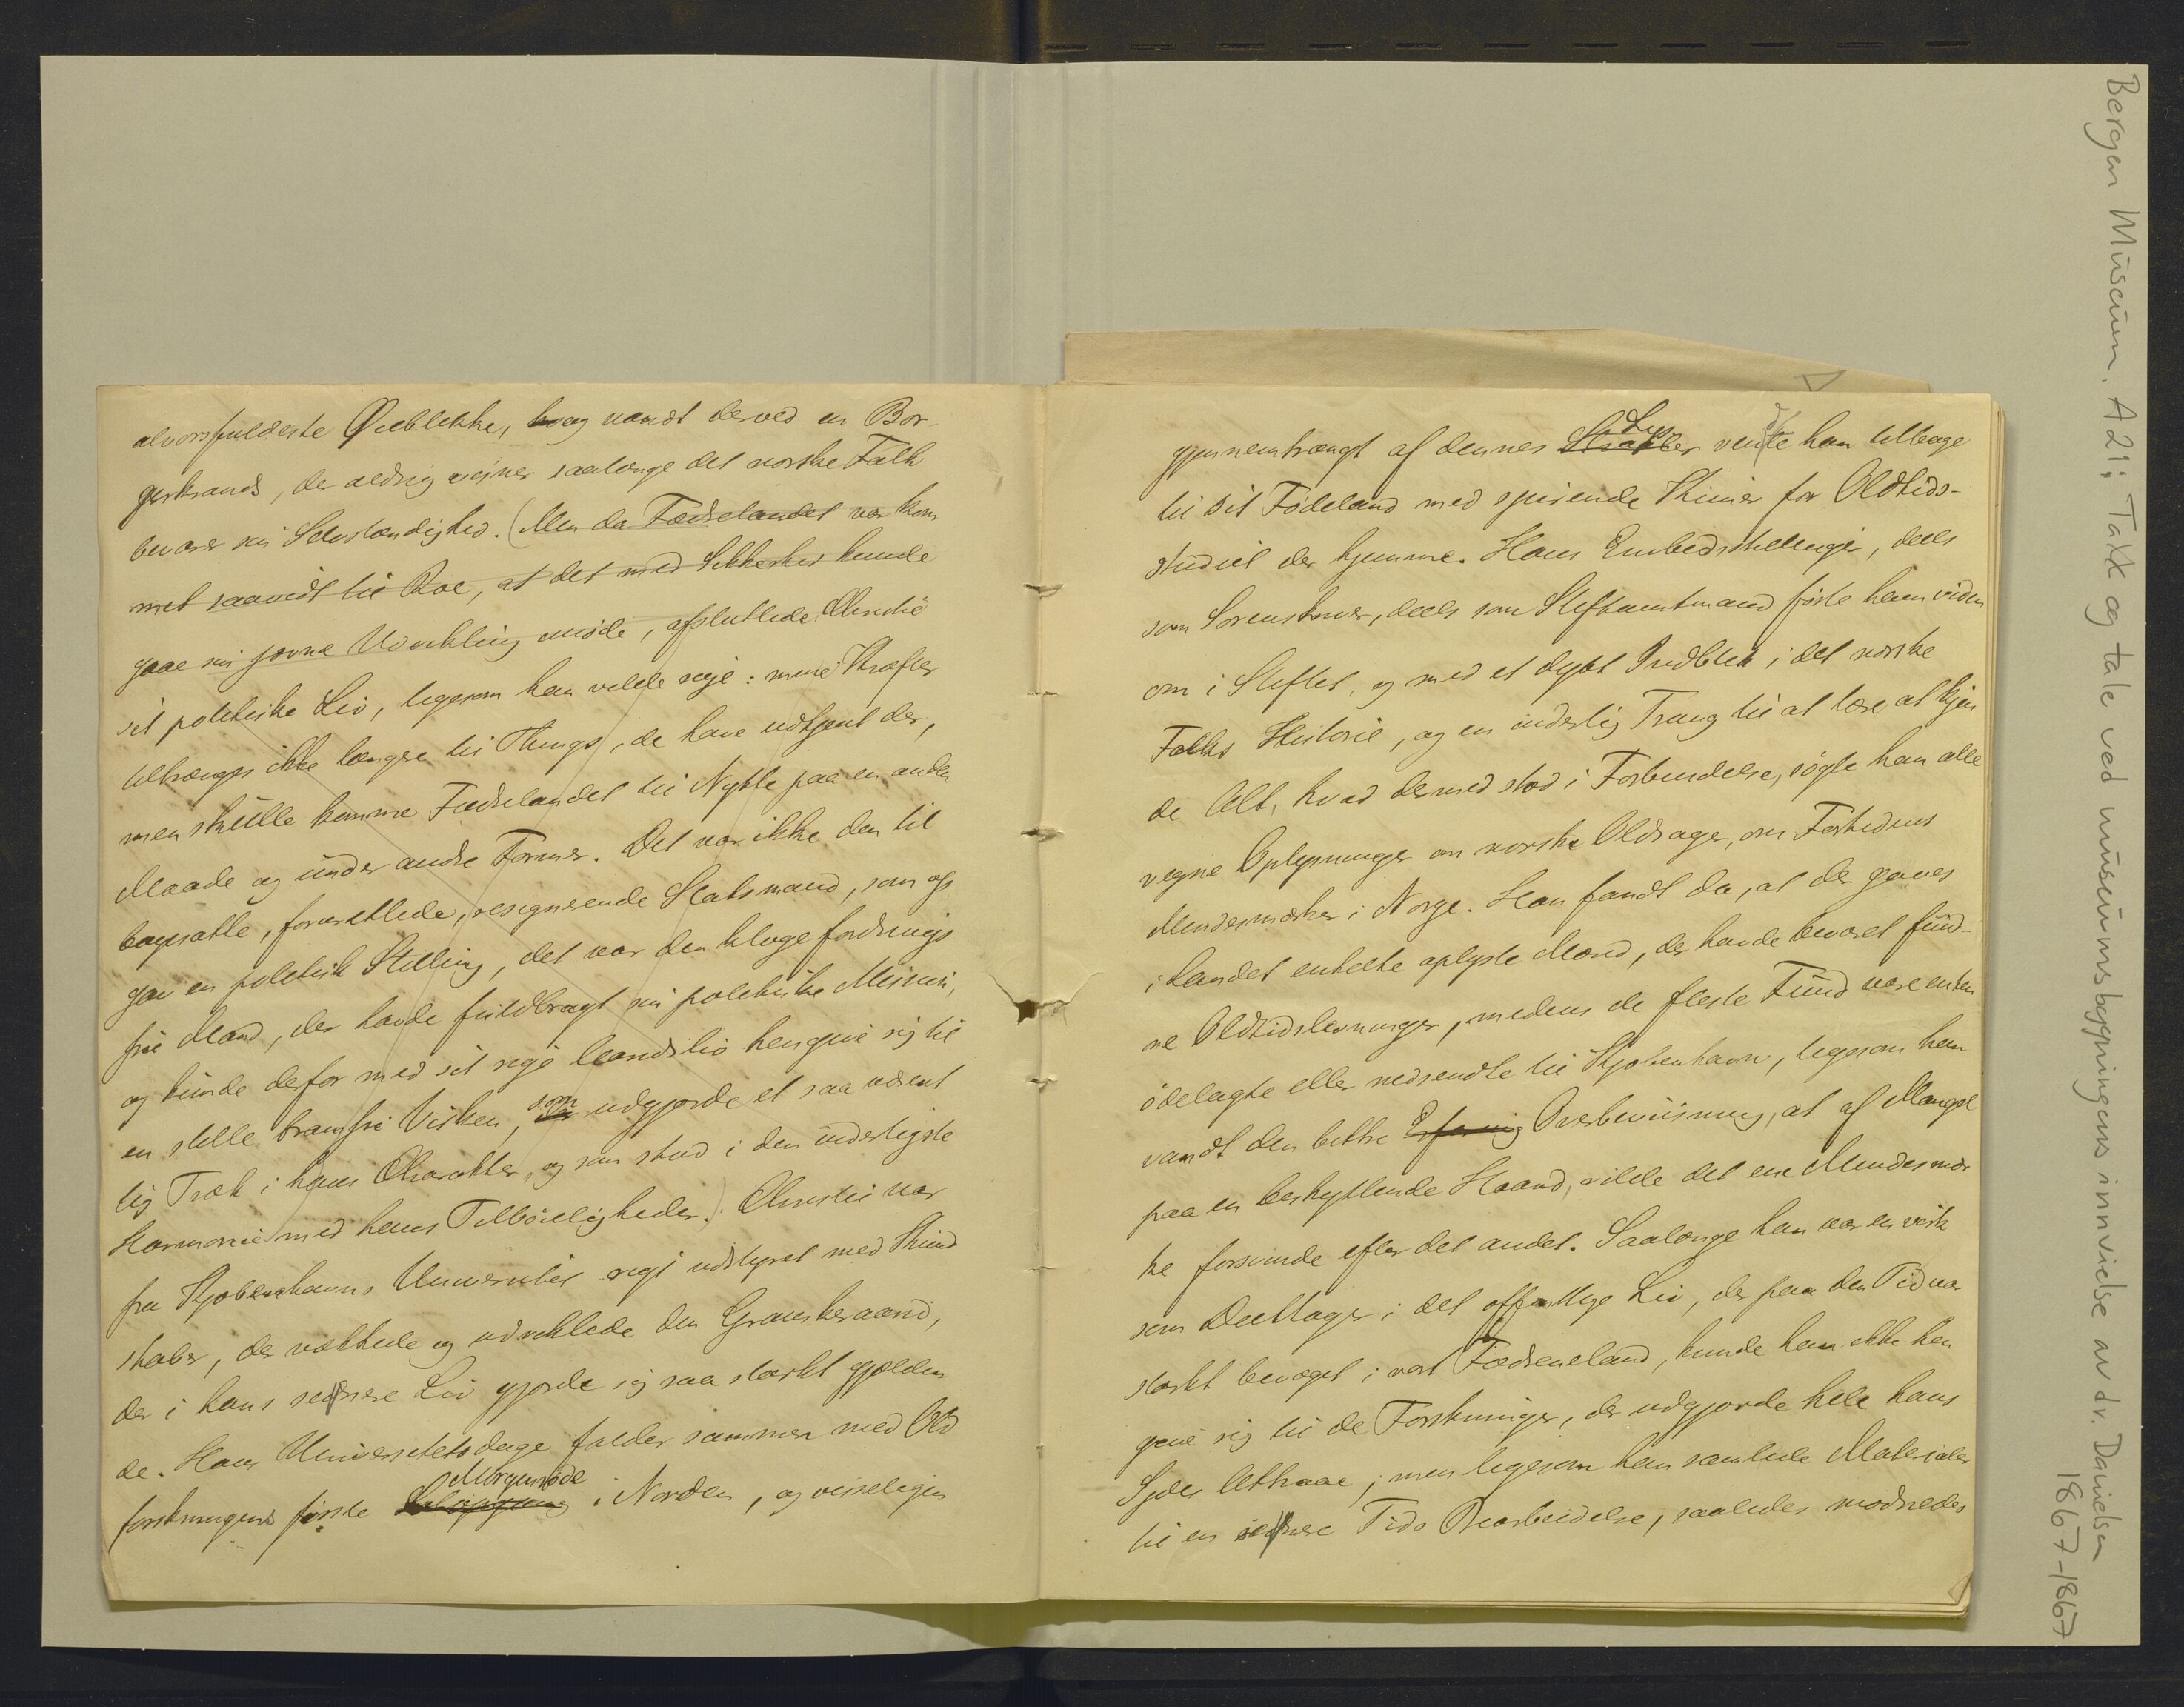 alvorsfuldeste Øieblikke, hv og vandt derved en Bor-
gerkrands, der aldrig visner saalænge det norske Folk
bevarer sin Selvstændighed. (Men da Fædrelandet var kom
met saavidt til Roe, at det med Sikkerhed kunde
gaae sin jævne Udvikling imøde, afsluttede Christie
sit politiske Liv, ligesom han vilde sige: mine Kræfter
tiltrænges ikke længere til Things, de have udtjent der,
men skulle komme Fædrelandet til Nytte paa en anden
Maade og under andre Former. Det var ikke den til
bagesatte, forurettede, resignerende Statsmand, som op
gav en politisk Stilling, det var den kloge fordrings
frie Mand, der havde fuldbragt sin politiske Mission,
og kunde derfor med sit rige Aandsliv hengive sig til
en stille bramfri Virken, som udgjorde et saa væsent
lig Træk i hans Charakter, og som stod i den inderligste
Harmonie med hans Tilbøieligheder.) Christie var
fra Kjøbenhavns Universitet rigt udstyret med Kund
skaber, der vækkede og udviklede den Granskeraand,
der i hans seinere Liv gjorde sig saa stærkt gjælden
de. Hans Universitetsdage falder sammen med Old
forskningens første Morgenrøde i Norden, og visseligen
gjennemtrængt af dennes Straaler Lys vendte han tilbage
til sit Fødeland med spirende Kimer for Oldtids-
studiet der hjemme. Hans Embedsstillinger, deels
som Sorenskriver, deels som Stiftamtmandførte ham viden
om i Stiftet, og med et dybt Indblik i det norske
Folks Historie, og en inderlig Trang til at lære at kjen
de Alt, hvad dermed stod i Forbindelse, søgte han alle
vegne Oplysninger om norske Oldsager, om Fortidens
Mindesmærker i Norge. Han fandt da, at der gaves
i Landet enkelte oplyste Mænd, der havde bevaret fund-
ne Oldtidslevninger, medens de fleste Fund vare enten
ødelagte eller nedsendte til Kjøbenhavn, ligesom han
vandt den bittre Erfaring Overbeviisning, at af Mangel
paa en beskyttende Haand, vilde det ene Mindesmær
ke forsvinde efter det andet. Saalænge han var en virk
som Deeltager i det offentlige Liv, der paa den Tid var
stærkt bevæget i vort Fædreneland, kunde han ikke hen
give sig til de Forskninger, der udgjorde hele hans
Sjæls Attraae; men ligesom han samlede Materialer
til en seinere Tids Bearbeidelse, saaledes modnedes
Bergen Museum. A21: Takk og tale ved museumsbygningens innvielse av dr. Danielsen
1867-1867